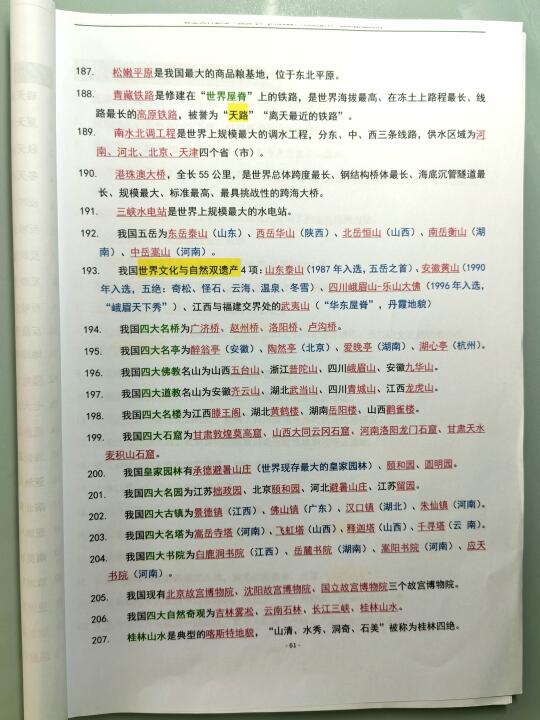 187. 松嫩平原是我国最大的商品粮基地，位于东北平原。
188. 青藏铁路是修建在“世界屋脊”上的铁路，是世界海拔最高、在冻土上路程最长、线
路最长的高原铁路，被誉为“天路”“离天最近的铁路”。
189. 南水北调工程是世界上规模最大的调水工程，分东、中、西三条线路，供水区域为河
南、河北、北京、天津四个省（市）。
190. 港珠澳大桥，全长 55 公里，是世界总体跨度最长、钢结构桥体最长、海底沉管隧道最
长、规模最大、标准最高、最具挑战性的跨海大桥。
191. 三峡水电站是世界上规模最大的水电站。
192. 我国五岳为东岳泰山（山东）、西岳华山（陕西）、北岳恒山（山西）、南岳衡山（湖
南）、中岳嵩山（河南）。
193. 我国世界文化与自然双遗产 4 项：山东泰山（1987 年入选，五岳之首）、安徽黄山（1990
年入选，五绝：奇松、怪石、云海、温泉、冬雪）、四川峨眉山-乐山大佛（1996 年入选，
“峨眉天下秀”）、江西与福建交界处的武夷山（“华东屋脊”，丹霞地貌）
194. 我国四大名桥为广济桥、赵州桥、洛阳桥、卢沟桥。
195. 我国四大名亭为醉翁亭（安徽）、陶然亭（北京）、爱晚亭（湖南）、湖心亭（杭州）。
196. 我国四大佛教名山为山西五台山、浙江普陀山、四川峨眉山、安徽九华山。
197. 我国四大道教名山为安徽齐云山、湖北武当山、四川青城山、江西龙虎山。
198. 我国四大名楼为江西滕王阁、湖北黄鹤楼、湖南岳阳楼、山西鹳雀楼。
199. 我国四大石窟为甘肃敦煌莫高窟、山西大同云冈石窟、河南洛阳龙门石窟、甘肃天水
麦积山石窟。
200. 我国皇家园林有承德避暑山庄（世界现存最大的皇家园林）、颐和园、圆明园。
201. 我国四大名园为江苏拙政园、北京颐和园、河北避暑山庄、江苏留园。
202. 我国四大古镇为景德镇（江西）、佛山镇（广东）、汉口镇（湖北）、朱仙镇（河南）。
203. 我国四大名塔为嵩岳寺塔（河南）、飞虹塔（山西）、释迦塔（山西）、千寻塔（云 南）。
204. 我国四大书院为白鹿洞书院（江西）、岳麓书院（湖南）、嵩阳书院（河南）、应天
书院（河南）。
205. 我国现有北京故宫博物院、沈阳故宫博物院、国立故宫博物院三个故宫博物院。
206. 我国四大自然奇观为吉林雾凇、云南石林、长江三峡、桂林山水。
207. 桂林山水是典型的喀斯特地貌，“山清、水秀、洞奇、石美”被称为桂林四绝。
- 61 -